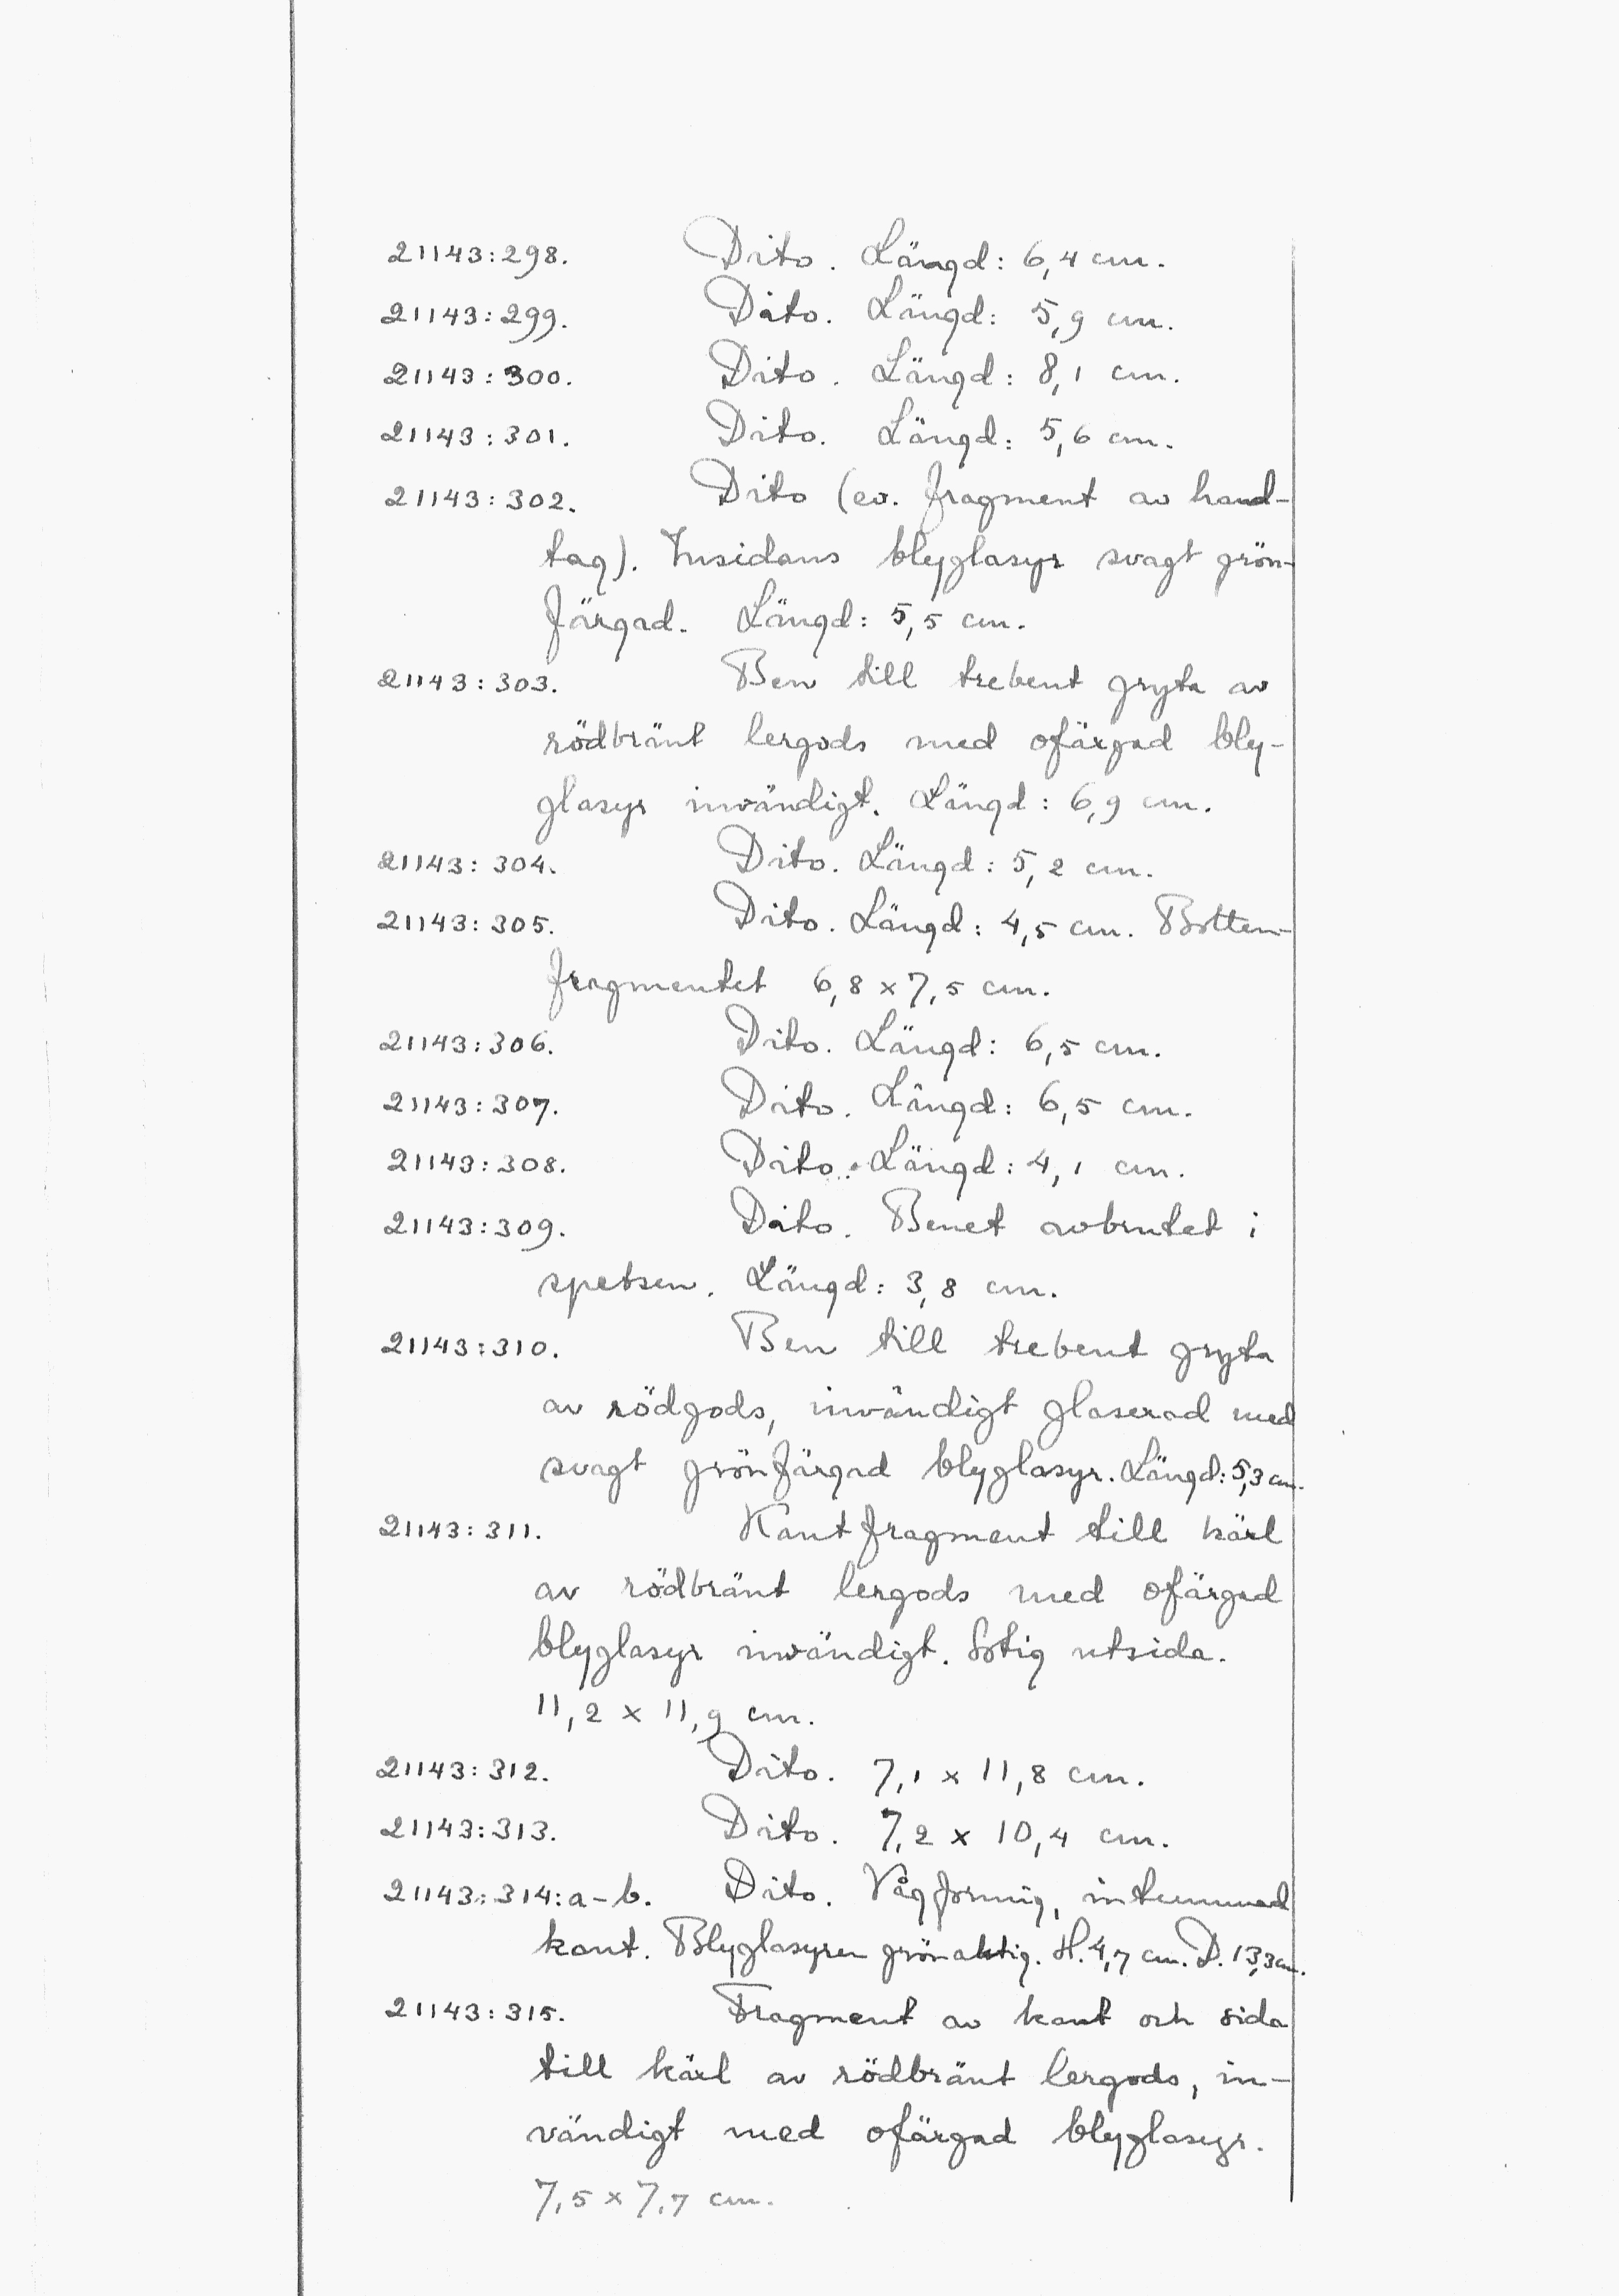 21143:298. Dito. Längd: 6,4 cm.
21143:299. Dito. Längd: 5,9 cm.
21143:300. Dito. Längd: 8,1 cm.
21143:301. Dito. Längd: 5,6 cm.
21143:302. Dito (ev. fragment av hand-
tag). Insidans blyglasyr svagt grön-
färgad. Längd: 5,5 cm.
21143:303. Ben till trebent gryta av
rödbränt lergods med ofärgad bly-
glasyr invändigt. Längd: 6,9 cm.
21143:304. Dito. Längd: 5,2 cm.
21143:305. Dito. Längd: 4,5 cm. Botten-
fragmentet 6,8 x 7,5 cm.
21143:306. Dito. Längd: 6,5 cm.
21143:307. Dito. Längd: 6,5 cm.
21143:308. Dito. Längd: 4,1 cm.
21143:309. Dito. Benet avbrutet i
spetsen. Längd: 3,8 cm.
21143:310. Ben till trebent gryta
av rödgods, invändigt glaserad med
svagt grönfärgad blyglasyr. Längd: 5,3 cm.
21143:311. Kantfragment till kärl
av rödbränt lergods med ofärgad
blyglasyr invändigt. Sotig utsida.
11,2 x 11,9 cm.
21143:312. Dito. 7,1 x 11,8 cm.
21143:313. Dito. 7,2 x 10,4 cm.
21143:314:a-b. Dito. Vågformig, intummad
kant. Blyglasyren grönaktig. H. 4,7 cm. D. 13,3 cm.
21143:315. Fragment av kant och sida
till kärl av rödbränt lergods, in-
vändigt med ofärgad blyglasyr.
7,5 x 7,7 cm.